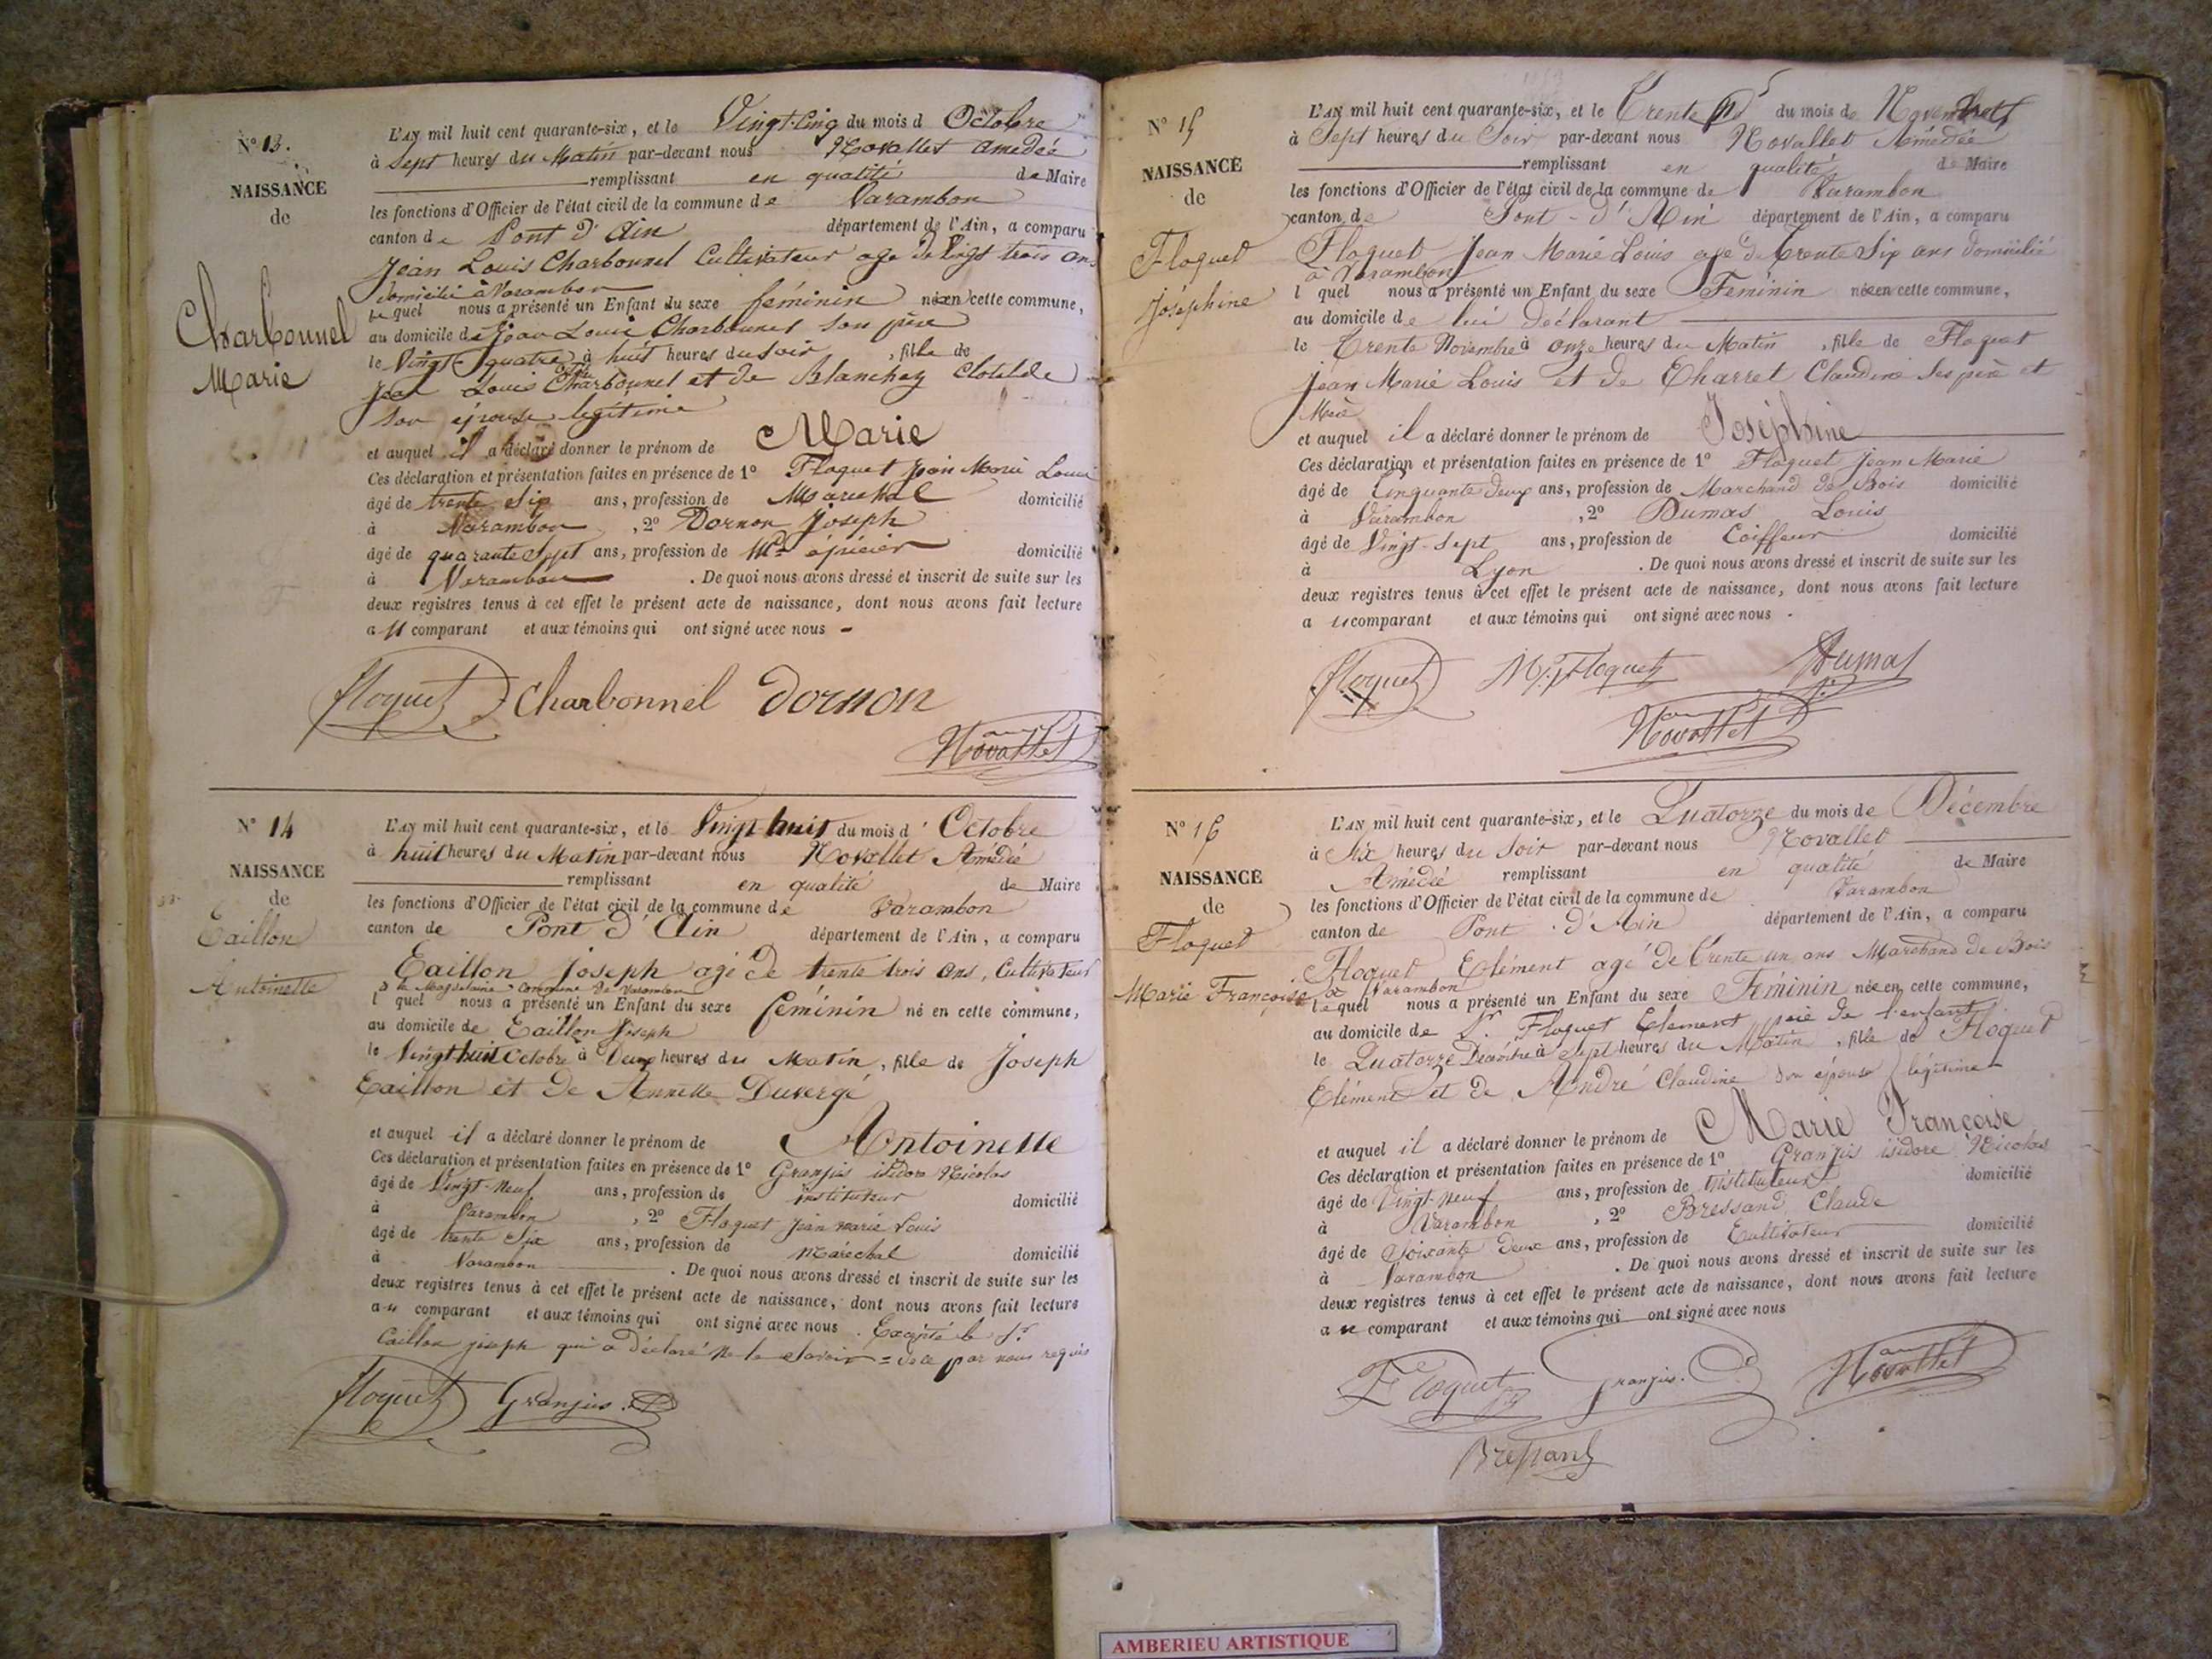 N° 13.
NAISSANCE
de
Charbonnel
Marie
L'AN mil huit cent quarante-six, et le Vingt-Cinq du mois d Octobre
à Sept heures du Matin par-devant nous Novallet Amédée
remplissant en qualité de Maire
les fonctions d'Officier de l'état civil de la commune de Varambon
canton de Pont d'Ain département de l'Ain, a comparu
Jean Louis Charbonnel Cultivateur age de Vingt trois ans
domicilié à Varambon
le quel nous a présenté un Enfant du sexe féminin né en cette commune,
au domicile de Jean Louis Charbonnel son père
le Vingt quatre à huit heures du soir, fille de
Jean Louis Charbonnel et de Blanchey Clotilde
son épouse légitime
et auquel il a déclaré donner le prénom de Marie
Ces déclaration et présentation faites en présence de 1° Floquet Jean Marie Louis
âgé de trente Six ans, profession de Maréchal domicilié
à Varambon, 2° Dornon Joseph
âgé de quarante Sept ans, profession de Md épicier domicilié
à Varambon. De quoi nous avons dressé et inscrit de suite sur les
deux registres tenus à cet effet le présent acte de naissance, dont nous avons fait lecture
au comparant et aux témoins qui ont signé avec nous
floquet Charbonnel Dornon
Novallet
N° 14
NAISSANCE
de
Caillon
Antoinette
L'AN mil huit cent quarante-six, et le Vingt huit du mois d'Octobre
à huit heures du Matin par-devant nous Novallet Amédée
remplissant en qualité de Maire
les fonctions d'Officier de l'état civil de la commune de Varambon
canton de Pont d'Ain département de l'Ain, a comparu
Caillon Joseph agé de trente trois ans, Cultivateur
à la Magdelaine Commune de Varambon
l quel nous a présenté un Enfant du sexe féminin né en cette commune,
au domicile de Caillon Joseph
le Vingt huit Octobre à Deux heures du Matin, fille de Joseph
Caillon et de Annette Duvergé
et auquel il a déclaré donner le prénom de Antoinette
Ces déclaration et présentation faites en présence de 1° Granjus isidore Nicolas
âgé de Vingt-neuf ans, profession de instituteur domicilié
à Varambon, 2° Floquet Jean marie Louis
âgé de trente Six ans, profession de Maréchal domicilié
à Varambon. De quoi nous avons dressé et inscrit de suite sur les
deux registres tenus à cet effet le présent acte de naissance, dont nous avons fait lecture
au comparant et aux témoins qui ont signé avec nous. Excepté le Sr
Caillon joseph qui a déclaré ne le Savoir = de ce par nous requis
floquet Granjus
N° 15
NAISSANCE
de
Floquet
Joséphine
L'AN mil huit cent quarante-six, et le Trente du mois de Novembre
à Sept heures du Soir par-devant nous Novallet Amédée
remplissant en qualité de Maire
les fonctions d'Officier de l'état civil de la commune de Varambon
canton de Pont-d'Ain département de l'Ain, a comparu
Floquet Jean Marie Louis age de trente Six ans domicilié
à Varambon
l quel nous a présenté un Enfant du sexe Féminin née en cette commune,
au domicile de lui déclarant
le Trente Novembre à onze heures du Matin, fille de Floquet
Jean Marie Louis et de Charret Claudine Ses père et
Mère
et auquel il a déclaré donner le prénom de Joséphine
Ces déclaration et présentation faites en présence de 1° Floquet Jean Marie
âgé de Cinquante deux ans, profession de Marchand de Bois domicilié
à Varambon, 2° Dumas Louis
âgé de Vingt-Sept ans, profession de Coiffeur domicilié
à Lyon. De quoi nous avons dressé et inscrit de suite sur les
deux registres tenus à cet effet le présent acte de naissance, dont nous avons fait lecture
au comparant et aux témoins qui ont signé avec nous.
floquet Floquet Dumas
Novallet
N° 16
NAISSANCE
de
Floquet
Marie Françoise
L'AN mil huit cent quarante-six, et le Quatorze du mois de Décembre
à Six heures du Soir par-devant nous Novallet
Amédée remplissant en qualité de Maire
les fonctions d'Officier de l'état civil de la commune de Varambon
canton de Pont-d'Ain département de l'Ain, a comparu
Floquet Clément agé de Trente un ans Marchand de Bois
à Varambon
le quel nous a présenté un Enfant du sexe Féminin née en cette commune,
au domicile de Sr Floquet Clement père de l'enfant
le Quatorze Décembre à Sept heures du Matin, fille de Floquet
Clément et de André Claudine Son épouse légitime
et auquel il a déclaré donner le prénom de Marie Françoise
Ces déclaration et présentation faites en présence de 1° Granjus isidore Nicolas
âgé de Vingt neuf ans, profession de instituteur domicilié
à Varambon, 2° Bressand Claude
âgé de Soixante Deux ans, profession de Cultivateur domicilié
à Varambon. De quoi nous avons dressé et inscrit de suite sur les
deux registres tenus à cet effet le présent acte de naissance, dont nous avons fait lecture
au comparant et aux témoins qui ont signé avec nous
Floquet Granjus Novallet
Bressand
AMBERIEU ARTISTIQUE